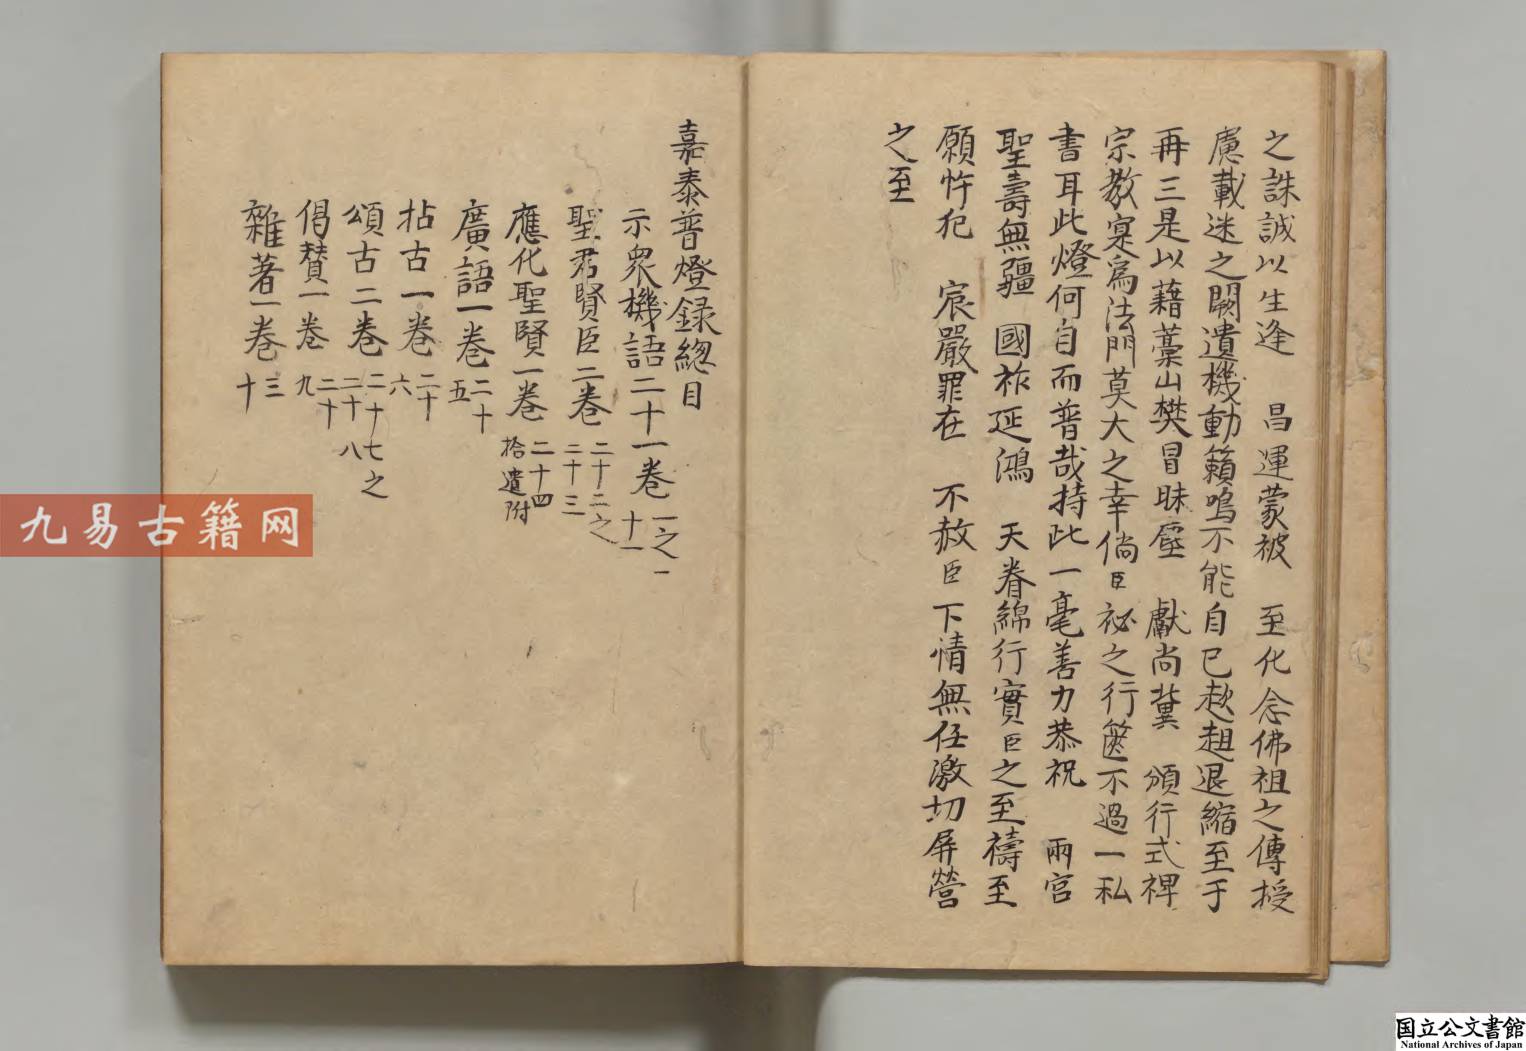 之誅誠以生逢　昌運蒙被　至化念佛祖之傳授
慮載迷之闕遺機動籟鳴不能自已趑趄退縮至于
再三是以藉藁山樊冒昧塵　獻尚冀　頒行式裨
宗教寔為法門莫大之幸倘臣祕之行篋不過一私
書耳此燈何自而普哉持此一毫善力恭祝　兩宮
聖壽無疆　國祚延鴻　天眷綿行實臣之至禱至
願忤犯　宸嚴罪在　不赦臣下情無任激切屏營
之至
嘉泰普燈録總目
示衆機語二十一卷 一之二十一
聖君賢臣二卷 二十二之二十三
應化聖賢一卷 二十四拾遺附
廣語一卷 二十五
拈古一卷 二十六
頌古二卷 二十七之二十八
偈賛一卷 二十九
雜著一卷 三十
九易古籍网
国立公文書館
National Archives of Japan